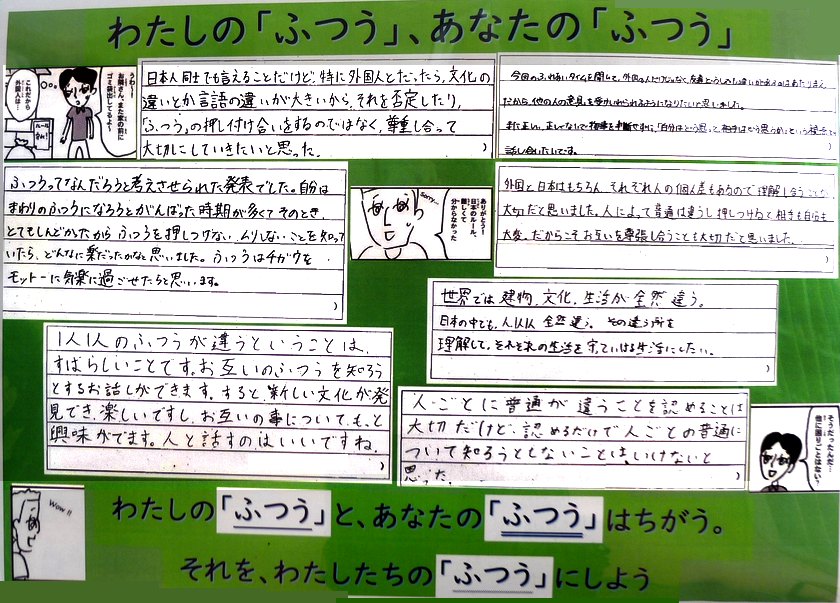 わたしの「ふつう」、あなたの「ふつう」
うわ〜!!
お隣さん、また家の前に
ゴミ袋出してるよ〜
これだから
外国人は…
日本人同士でも言えることだけど、特に外国人とだったら、文化の
違いとか言語の違いが大きいから、それを否定したり、
「ふつう」の押し付け合いをするのではなく、尊重し合って
大切にしていきたいと思った。
今回のふれあいタイムを通して、外国の人だけじゃなく、友達とうしでも違いがあるのはあたりまえ
だから、他の人の意見を受け入れられるようになりたいと思いました。
また正しい、正しくないで物事を判断せずに、「自分はどう思って、相手はどう思うか」という視点で
話し合いたいです。
ふつうってなんだろうと考えさせられた発表でした。自分は
まわりのふつうになろうとがんばった時期が多くて そのとき、
とてもしんどかったから ふつうを押しつけない、ムリしない ことを知って
いたら、どんなに楽だったかなと思いました。ふつうはチガウを
モットーに気楽に過ごせたらと思います。
Sorry…
ありがとう!
日本のルール、
難しくて
分からなかった
外国と日本はもちろん、それぞれ人の個人差もあるので理解し合うことが
大切だと思いました。人によって普通は違うし押しつけると相手も自分も
大変。だからこそお互いを尊重し合うことも大切だと思いました。
世界では 建物、文化、生活が 全然 違う。
日本の中でも、1人1人 全然 違う。その違う所を
理解して、それぞれの生活を守っていける生活にしたい。
1人1人のふつうが違うということは、
すばらしいことです。お互いのふつうを知ろう
とするお話しができます。すると、新しい文化が発
見でき、楽しいですし、お互いの事について、もっと
興味がでます。人と話すのはいいですね。
人ごとに普通が違うことを認めることは
大切だけど、認めるだけで人ごとの普通に
ついて知ろうとしないことは、いけないと
思った。
そうだったんだ…
他に困りごとはない?
Wow!!
わたしの「ふつう」と、あなたの「ふつう」はちがう。
それを、わたしたちの「ふつう」にしよう